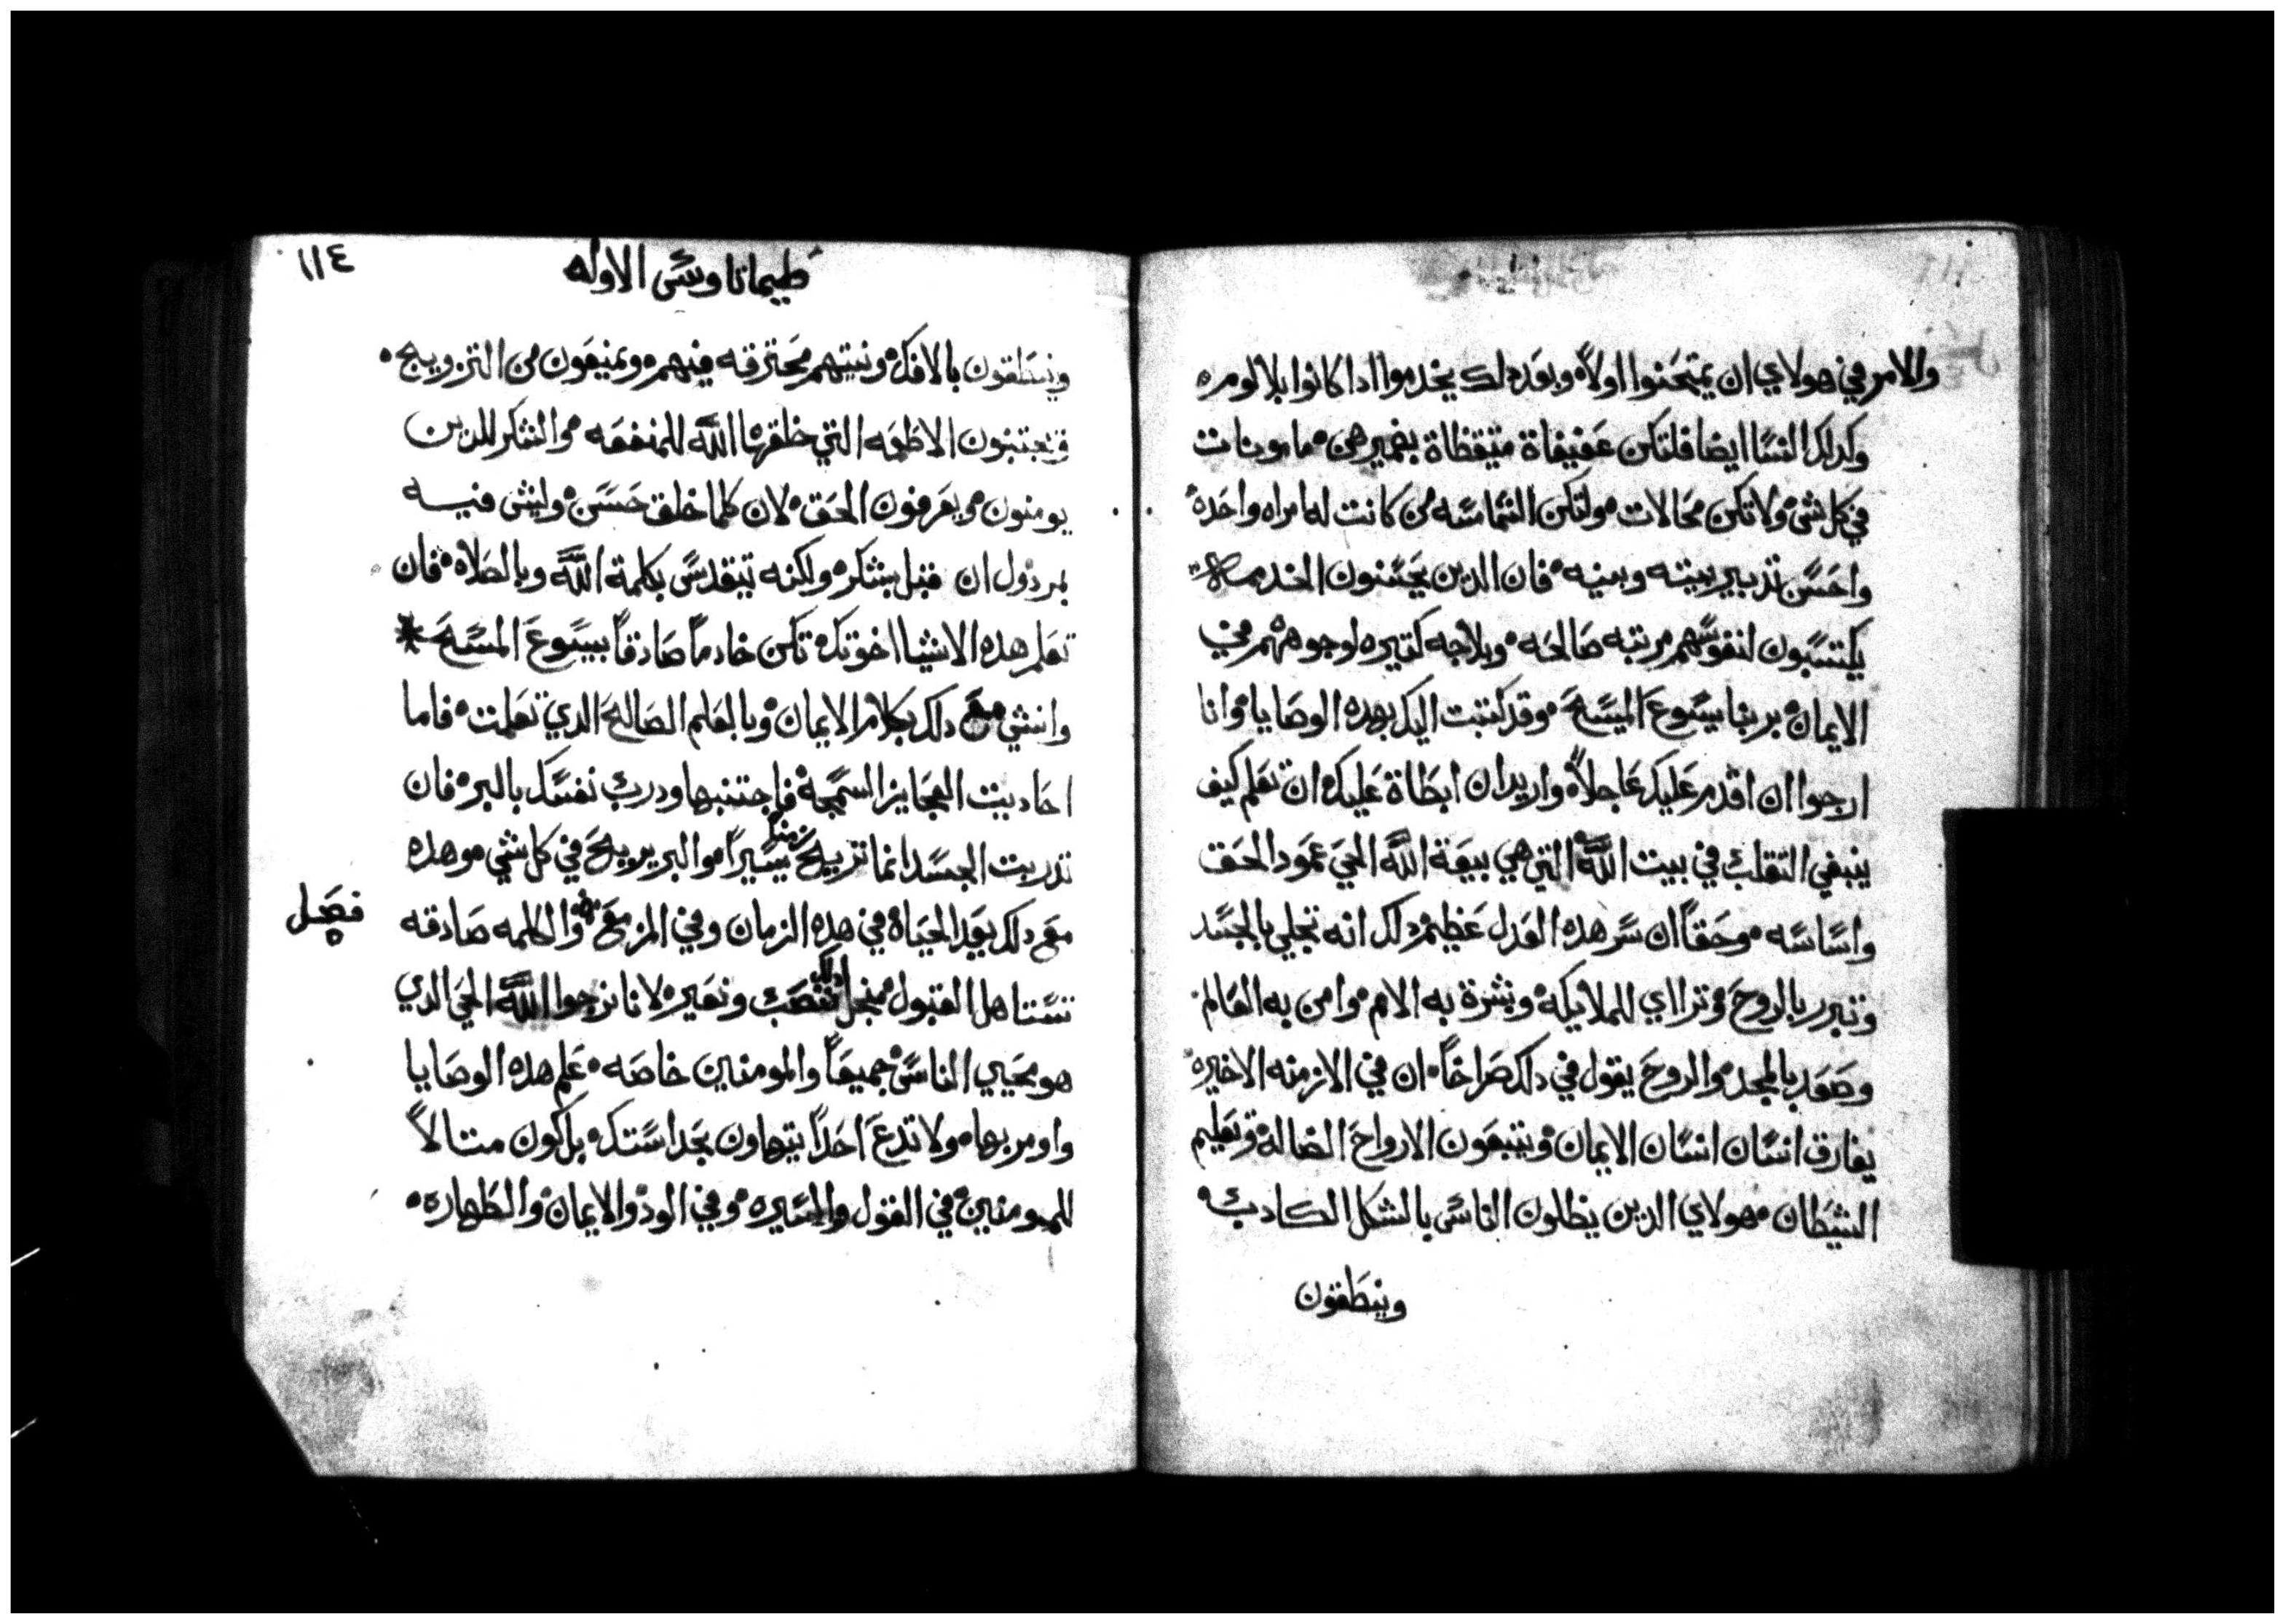 والامر في هولاي ان يمتحنوا اولاً وبعد دلك يخدموا ادا كانوا بلا لومه
وكدلك النسا ايضا فلتكن عفيفاة متيقظاة بضميرهن مامونات
في كل شي ولا تكن محالات ولتكن الشماسه من كانت له امراه واحده
واحسن تدبير بيته وبنيه فان الدين يحسنون الخدمه
يكتسبون لنفوسهم مرتبه صالحه وبلاجه كتيره لوجوههم في
الايمان بربنا يسوع المسيح وقد كتبت اليك بهده الوصايا وانا
ارجوا ان اقدم عليك عاجلاً واريد ان ابطاة عليك ان تعلم كيف
ينبغي التقلب في بيت الله التي هي بيعة الله الحي عمود الحق
واساسه وحقاً ان سر هده العدل عظيم دلك انه تجلي بالجسد
وتبرر بالروح وتراي للملايكه وبشرة به الامم وامن به العالم
وصعد بالمجد والروح يقول في دلك صراخاً ان في الازمنه الاخيره
يفارق انسان انسان الايمان ويتبعون الارواح الضاله وتعليم
الشيطان هولاي الدين يظلون الناس بالشكل الكادب
وينطقون
١١٤
طيماتاوس الاوله
وينطقون بالافك ونيتهم محترقه فيهم ويمنيعون من التزويج
ويجتنبون الاطعمه التي خلقها الله للمنفعه والشكر للدين
يومنون ويعرفون الحق لان كلما خلق حسن وليس فيه
مردول ان قبل بشكر ولكنه يتقدس بكلمة الله وبالصلاه فان
تعلم هده الاشيا اخوتك تكن خادماً صادقاً ليسوع المسيح
وانشي مع دلك بكلام الايمان وبالعلم الصالح الدي تعلمت فاما
احاديت العجايز السمجة فاجتنبها ودرب نفسك بالبر فان
تدريب الجسد انما تربح زمناً يسيراً والبر يربح في كل شي وهده
مع دلك بعد الحياة في هده الزمان وفي المزمع والكلمه صادقه
فصل
تستاهل القبول من اجل دلك نتصب ونعير لانا نرجوا الله الحي الدي
هو محيي الناس جميعاً والمومنين خاصه علم هده الوصايا
واومر بها ولا تدع احداً يتهاون بحداستك بل كون متالاً
للمومنين في القول والسيره وفي الود والايمان والطهاره